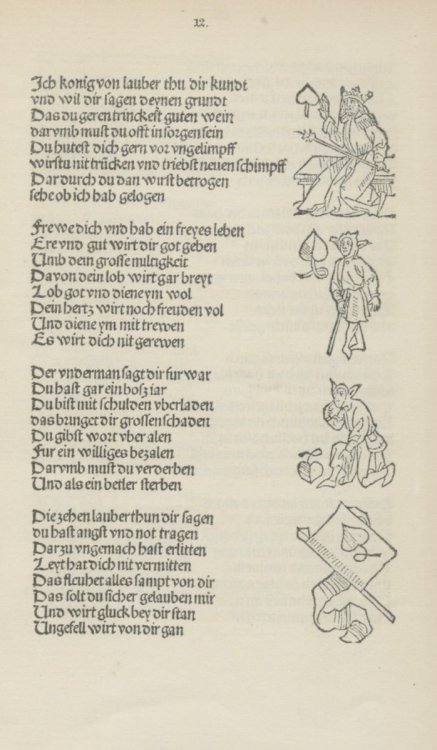 12.
Ich konig von lauber thu dir kundt
vnd wil dir sagen deynen grundt
Das du geren trinckest guten wein
darvmb must du offt in sorgen sein
Du hutest dich gern vor vngelimpff
wirstu nit trücken vnd triebst neuen schimpff
Dar durch du dan wirst betrogen
sehe ob ich hab gelogen
Frewe dich vnd hab ein freyes leben
Ere vnd gut wirt dir got geben
Umb dein grosse miltigkeit
Davon dein lob wirt gar breyt
Lob got vnd diene ym wol
Dein hertz wirt noch freuden vol
Und diene ym mit trewen
Es wirt dich nit gerewen
Der vnderman sagt dir fur war
Du hast gar ein bosz iar
Du bist mit schulden vberladen
das bringet dir grossen schaden
Du gibst wort vber alen
Fur ein williges bezalen
Darvmb must du verderben
Und als ein betler sterben
Die zehen lauber thun dir sagen
du hast angst vnd not tragen
Darzu vngemach hast erlitten
Leyt hat dich nit vermitten
Das fleuhet alles sampt von dir
Das solt du sicher gelauben mir
Und wirt gluck bey dir stan
Ungefell wirt von dir gan